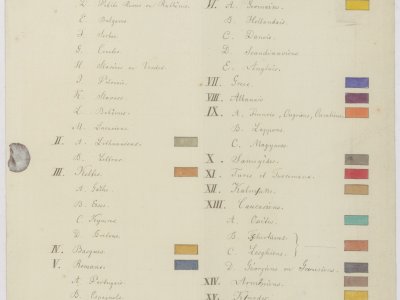 D. Petits Russes ou Ruthènes.
E. Bulgares
F. Serbes
G. Croates
H. Slovènes ou Vendes.
J. Polonais
K. Slovaques
L. Bohêmes
M. Lusaciens
II. A. Lithuaniens
B. Lettons
III. Keltes
A. Gaëls
B. Erses
C. Kymris
D. Bretons
IV. Basques
V. Romans
A. Portugais
B. Espagnols
VI. A. Germains
B. Hollandais
C. Danois
D. Scandinaves
E. Anglais
VII. Grecs
VIII. Albanais
IX. A. Finnois,
B. Lappons
C. Magyares
X. Samoyèdes
XI. Turcs et Turcomans
XII. Kalmyks
XIII. Caucasiens
A.
B.
C. Lesghiens
D. Géorgiens ou
XIV. Arméniens
XV.